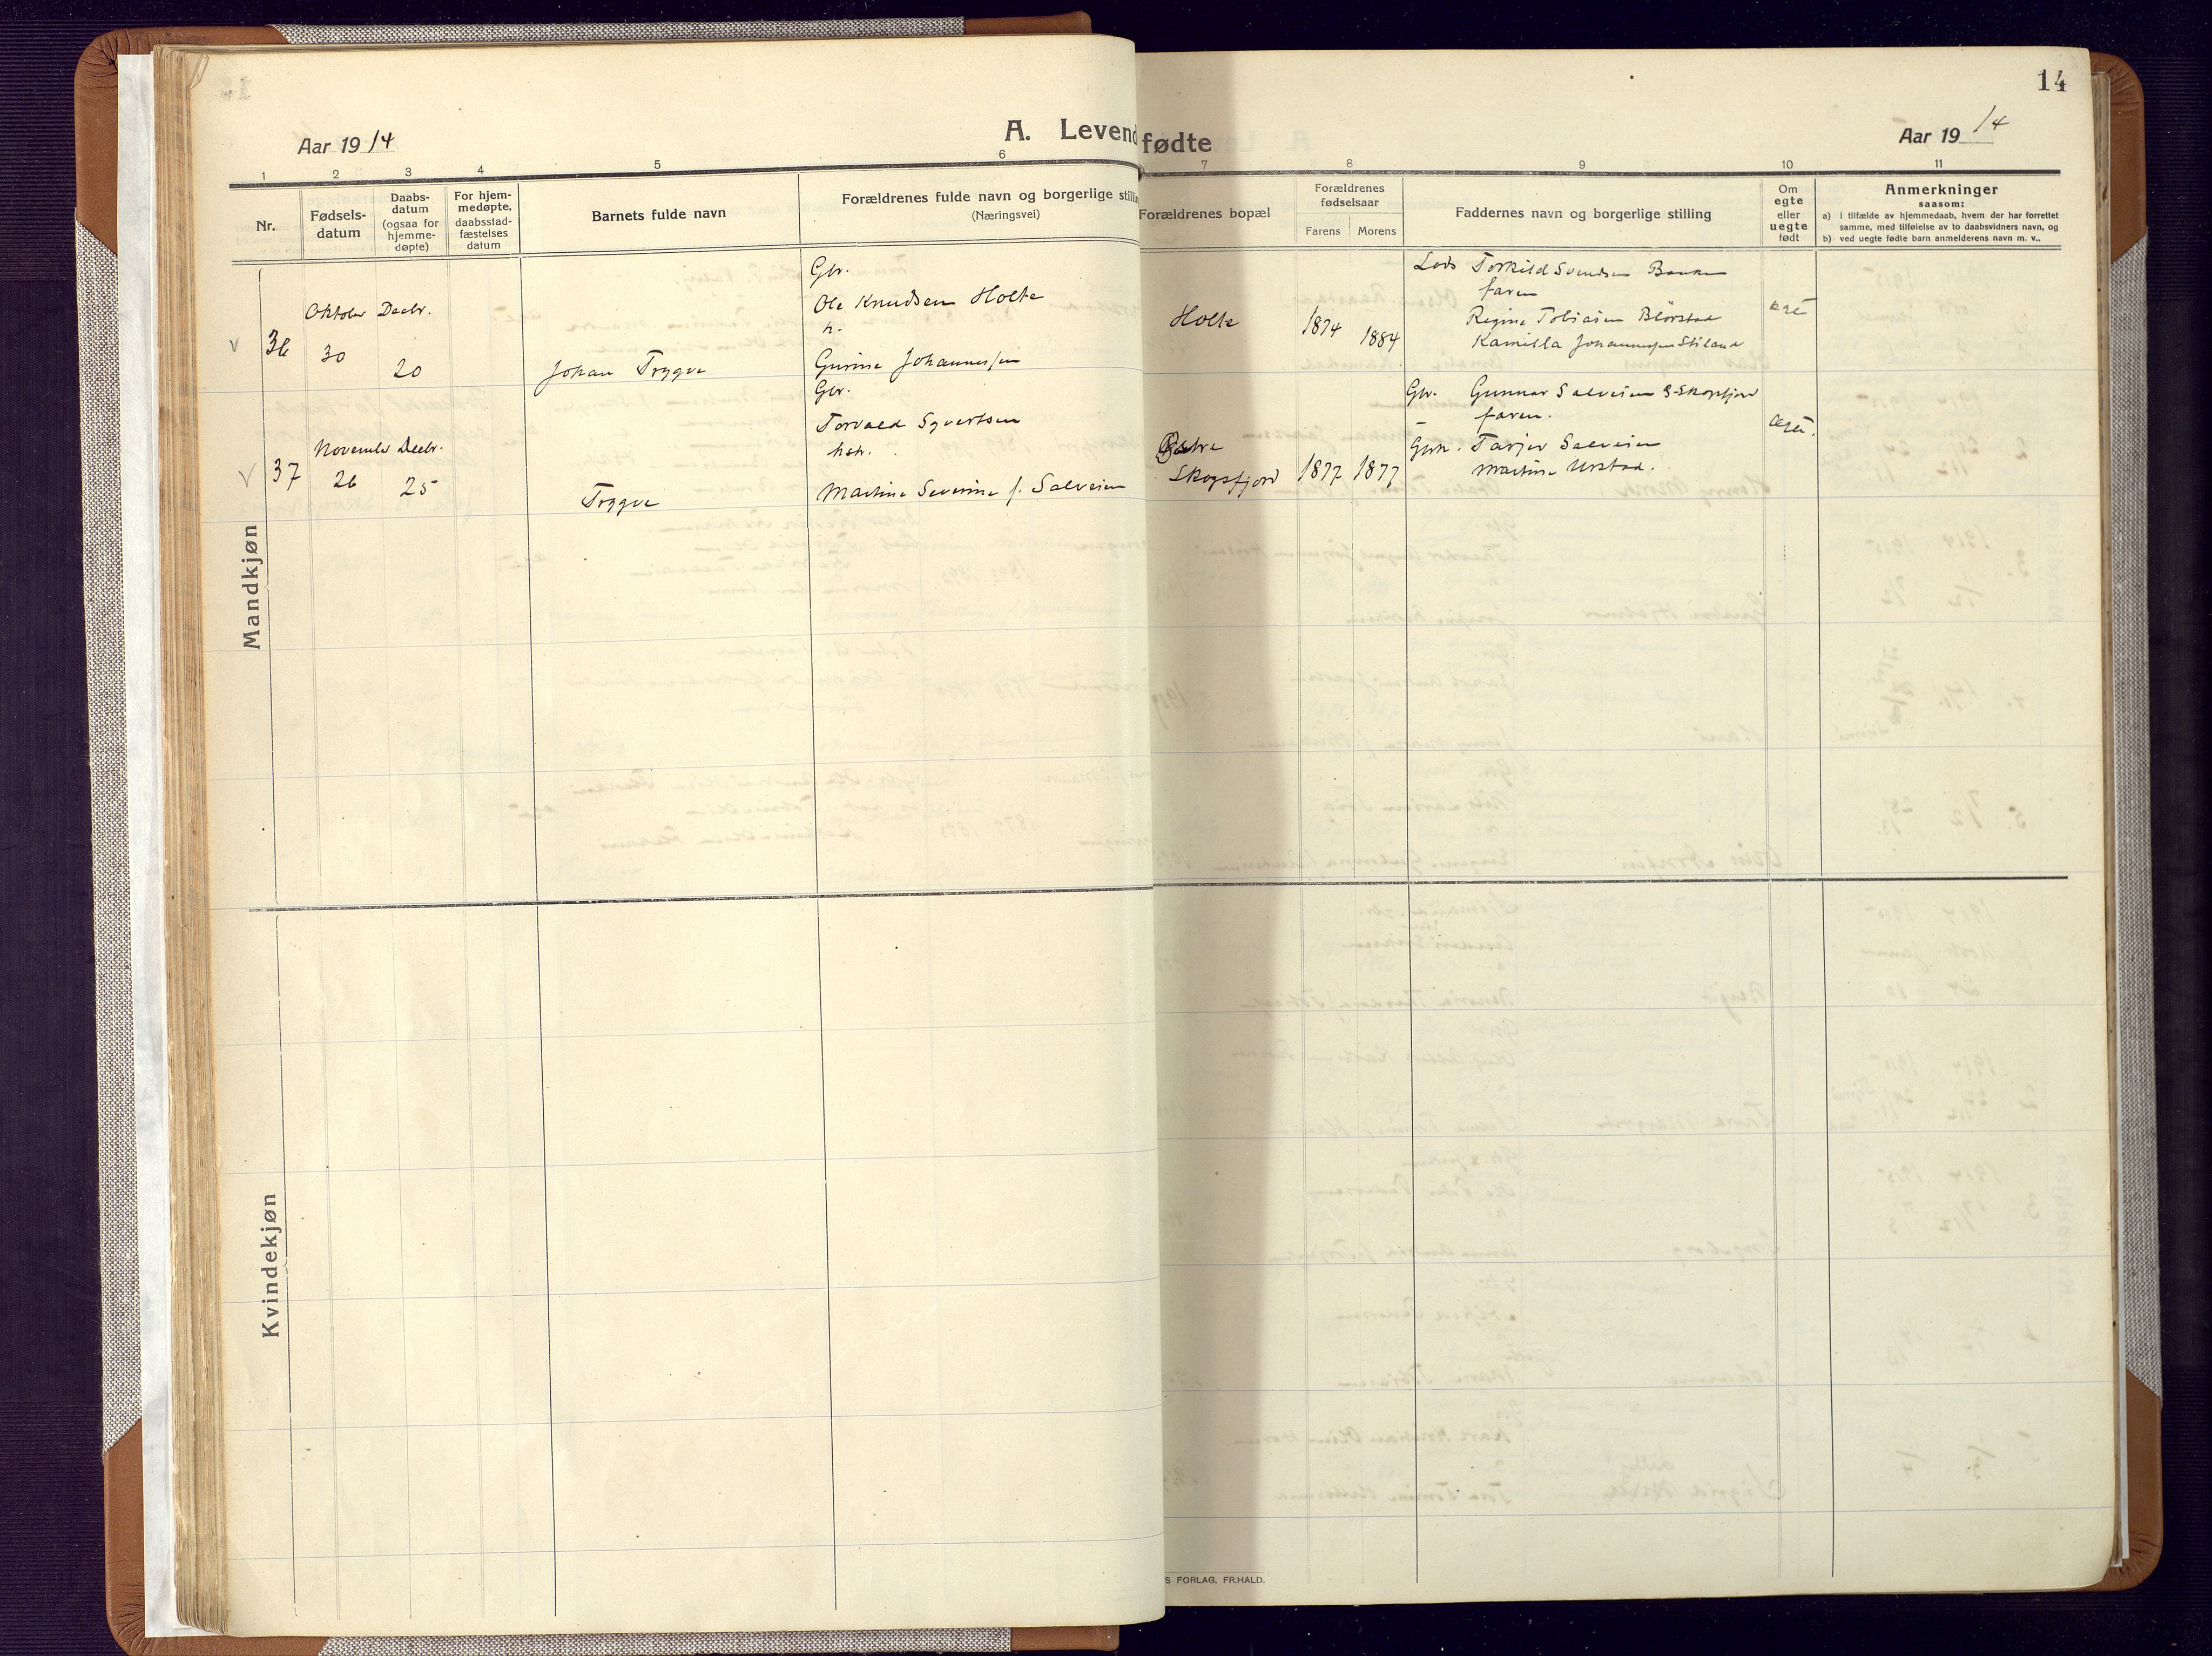 14
Aar 1914
A. Levend
fødte
Aar 1914
1 2 3 4 5 6 7 8 9 10 11
Nr.
Fødsels-
datum
Daabs-
datum
(ogsaa for
hjemme-
døpte)
For hjem-
medøpte,
daabsstad-
fæstelses
datum
Barnets fulde navn
Forældrenes fulde navn og borgerlige stillin
(Næringsvei)
Forældrenes bopæl
Forældrenes
fødselsaar
Farens Morens
Faddernes navn og borgerlige stilling
Om
egte
eller
uegte
født
Anmerkninger
saasom:
a) i tilfælde av hjemmedaab, hvem der har forrettet
samme, med tilføielse av to daabsvidners navn, og
b) ved uegte fødte barn anmelderens navn m. v..
Mandkjøn
36
Oktober Decbr.
30 20
Johan Trygve
Gbr.
Ole Knudsen Holte
h.
Gurine Johannessen
Holte
1874 1884
Lods Torkild Svendsen
faren
Regine Tobiasen
Kamilla Johannessen Stiland
egte
37
November Decbr.
26 25
Trygve
Gbr.
Torvald Syvertsen
hstr.
Martine Severine f. Salvesen
Østre
Skogsfjord
1877 1877
Gbr. Gunnar Salvesen Skogsfjord
faren.
Tarjer Salvesen
Martine Urstad.
egte.
Kvindekjøn
S FORLAG, FR.HALD.